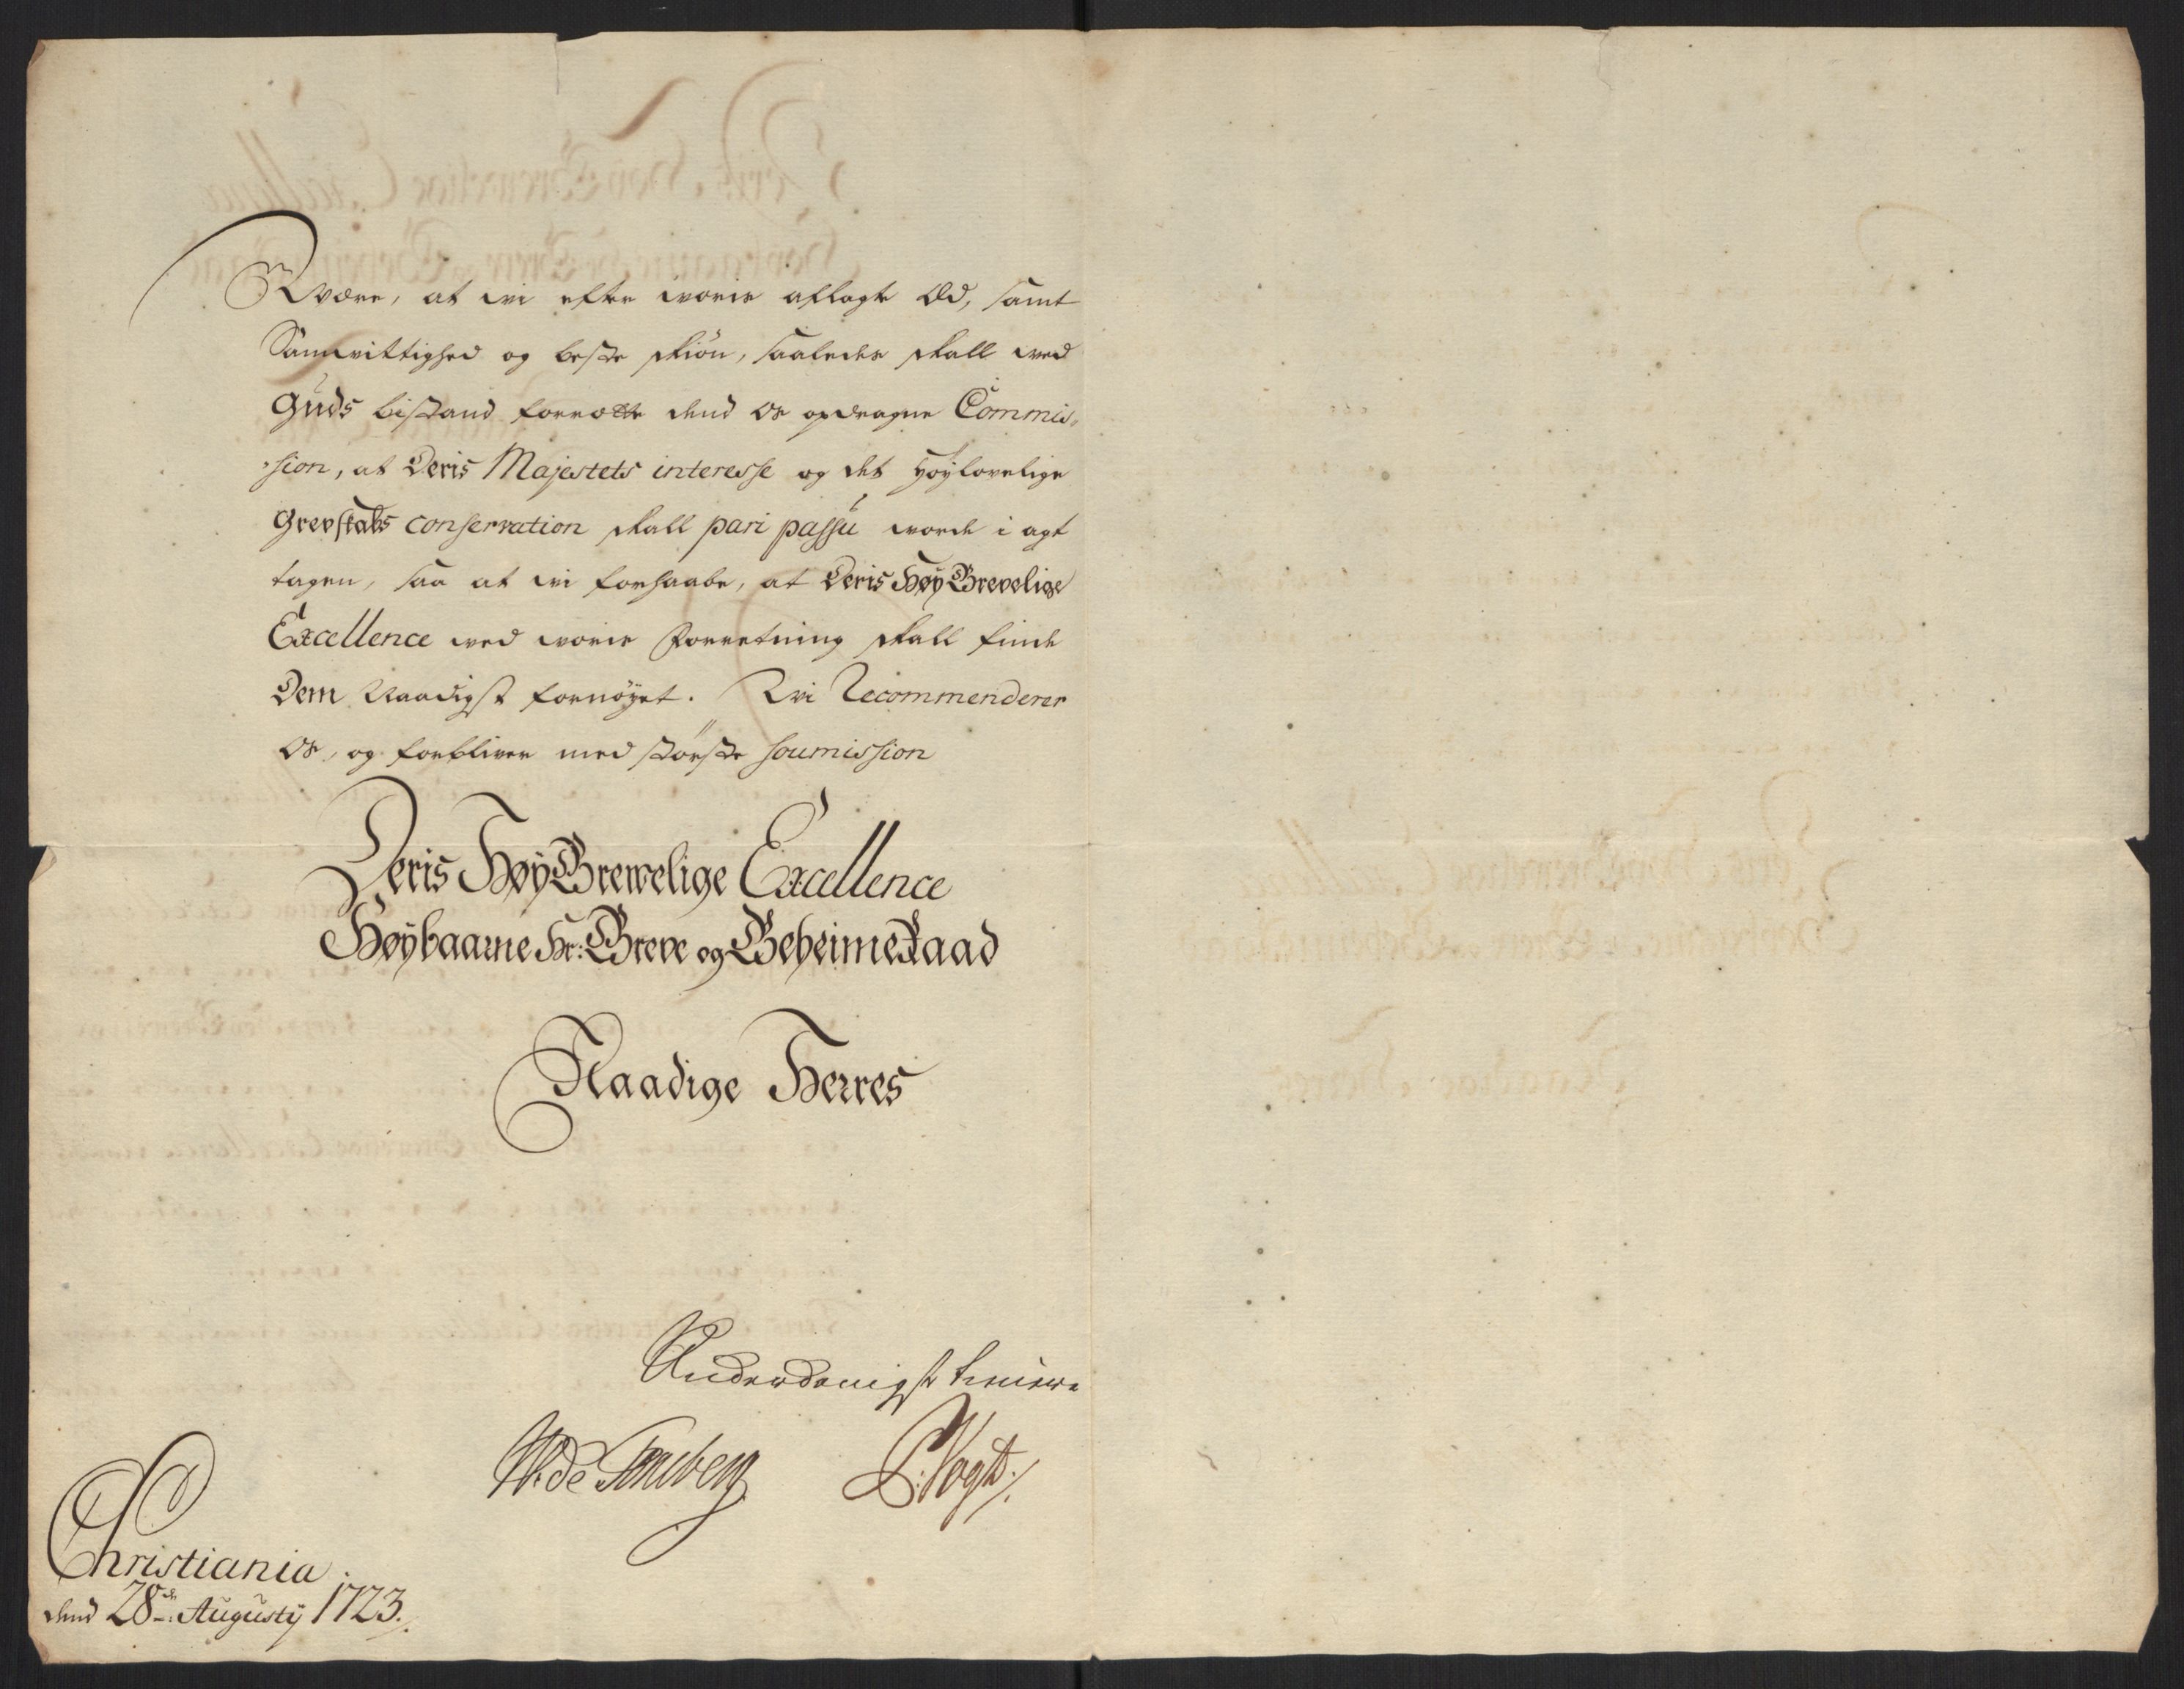 være, at wi efterworis aflagte Æd, samt
Samvittighed og beste skiøn, saaledes skall wed
Guds bistand forrætte dend os opdragne Commis-
sion, at Deris Majestets interesse og det høylovelige
Grevskabs conservation skall pari passu worde i agt
tagen, saa at wi forhaabe, at Deris Høy Grevelige
Excellence wed woris Forretning skall finde
Dem Naadigst fornøyet. Wi Recommenderer
os, og forbliver med største soumission
Deris HøyGrewelige Excellence
Høybaarne Hr: Greve og GeheimeRaad
Naadige Herres
Underdanigste tienere
W. de Tonsberg L: Vogt
Christiania
dend 28de: Augusty 1723.